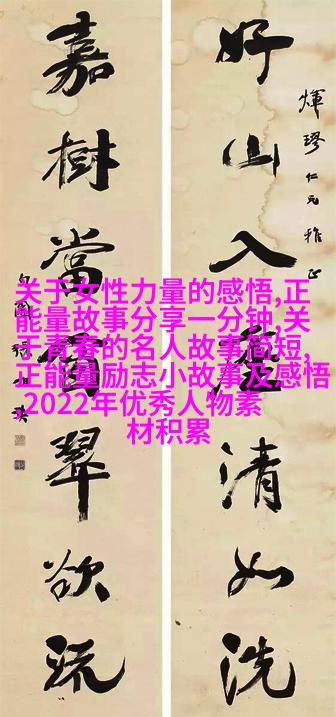 煇璆仁兄雅正
好山入座清如洗
嘉樹當翠欲流
关于女性力量的感悟,正
能量故事分享一分钟,关
于青春的名人故事简短,
正能量励志小故事及感悟
,2022年优秀人物素
材积累